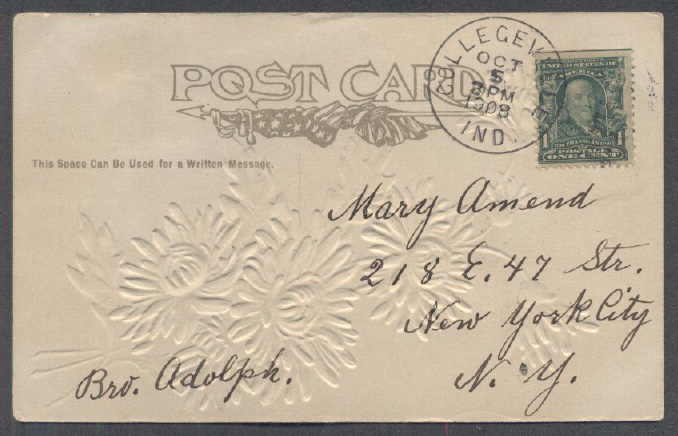 POST CARD
COLLEGEVILLE
OCT
5
3PM
1908
IND.
1 1
POSTAGE
ONE CENT
This Space Can Be Used for a Written Message.
Mary Amend
218 E. 47 Str.
New York City
N. Y.
Bro. Adolph.